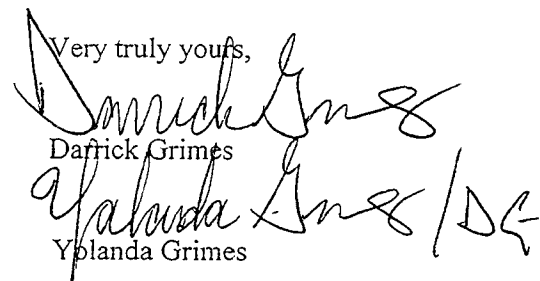 Very truly yours,
Darrick Grimes
Darrick Grimes
Yolanda Grimes /DG
Yolanda Grimes